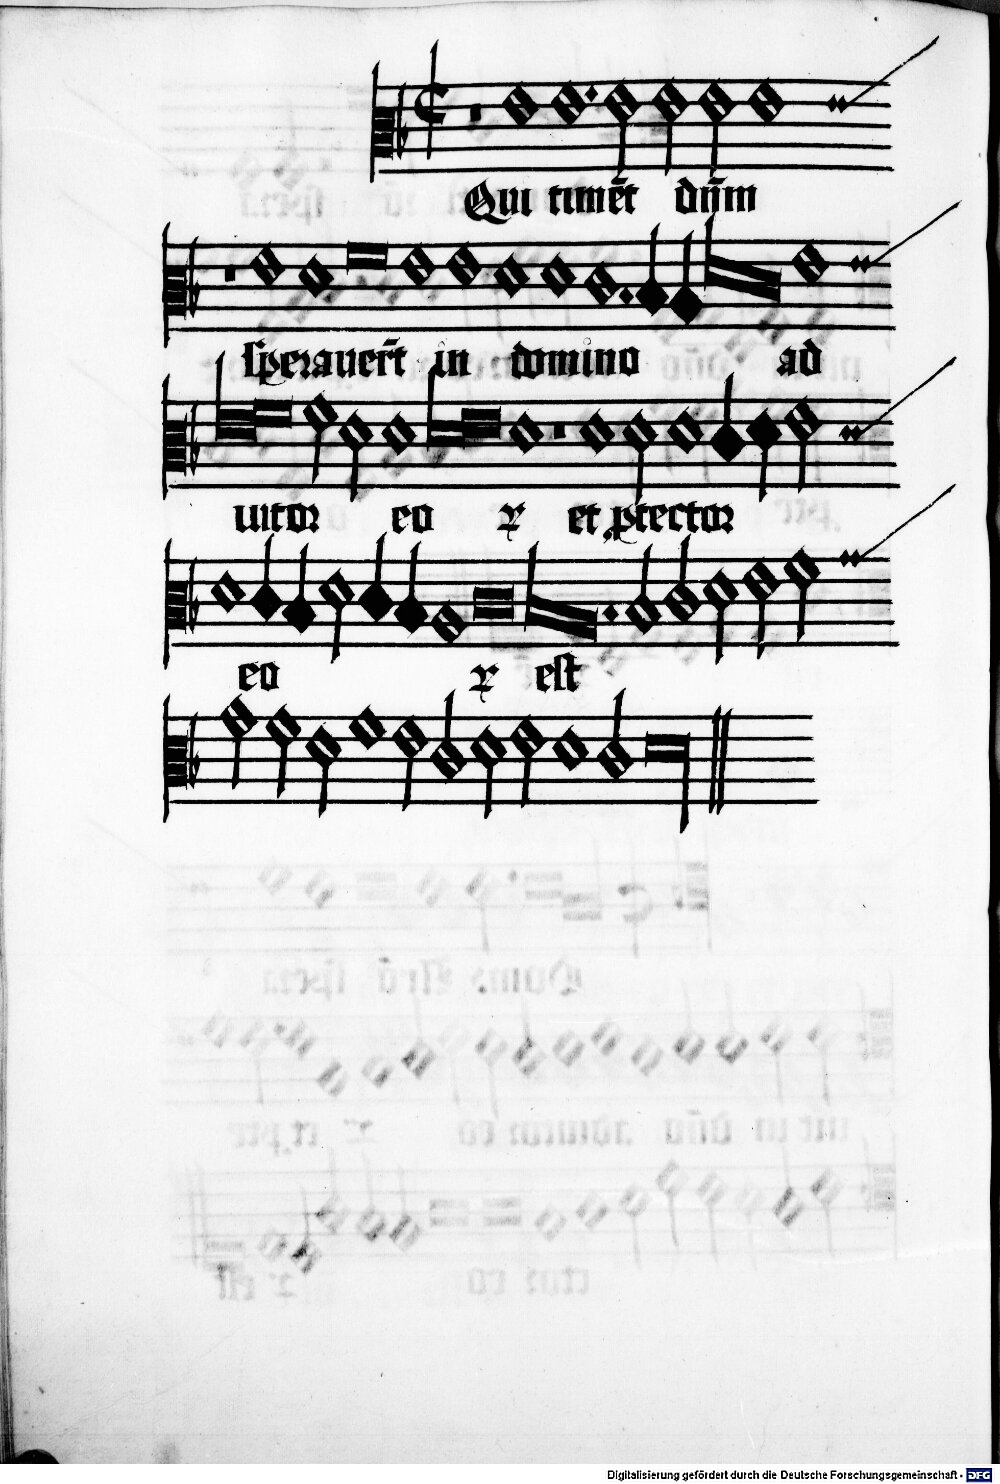 Qui timēt dn̄m
sperauer̄t in domino ad
iutor eo ꝝ et ꝓtector
eo ꝝ est
Digitalisierung gefördert durch die Deutsche Forschungsgemeinschaft - DFG